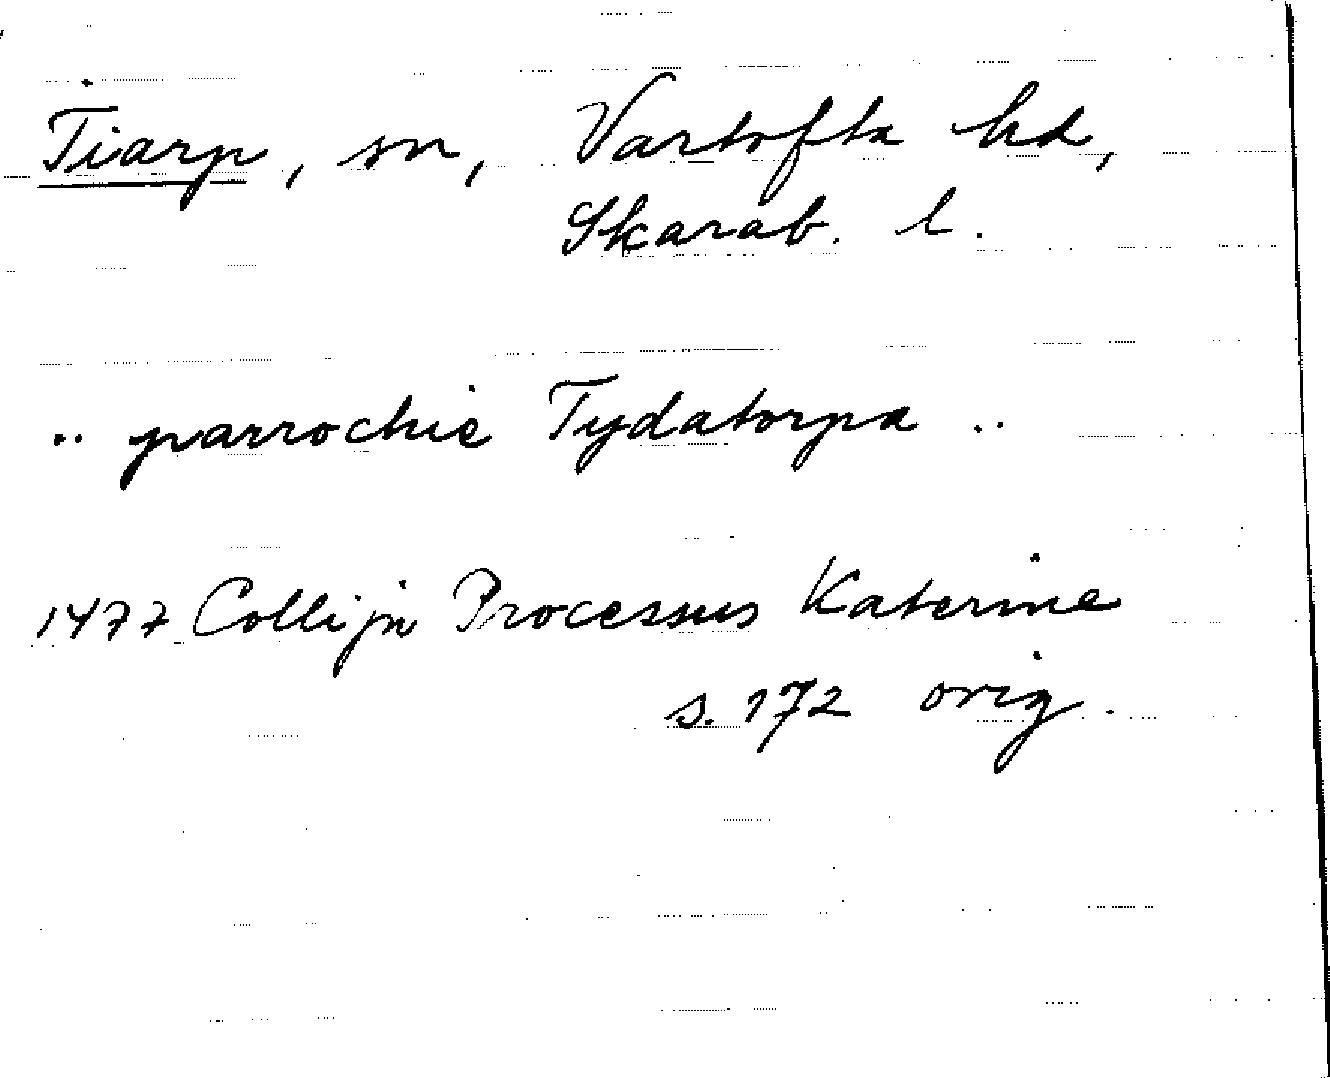 Tiarp, sn, Vartofta hd,
Skarab. l.
.. parrochie Tydatorpa ..
1477 Collijn Processus Katerine
s. 172 orig.